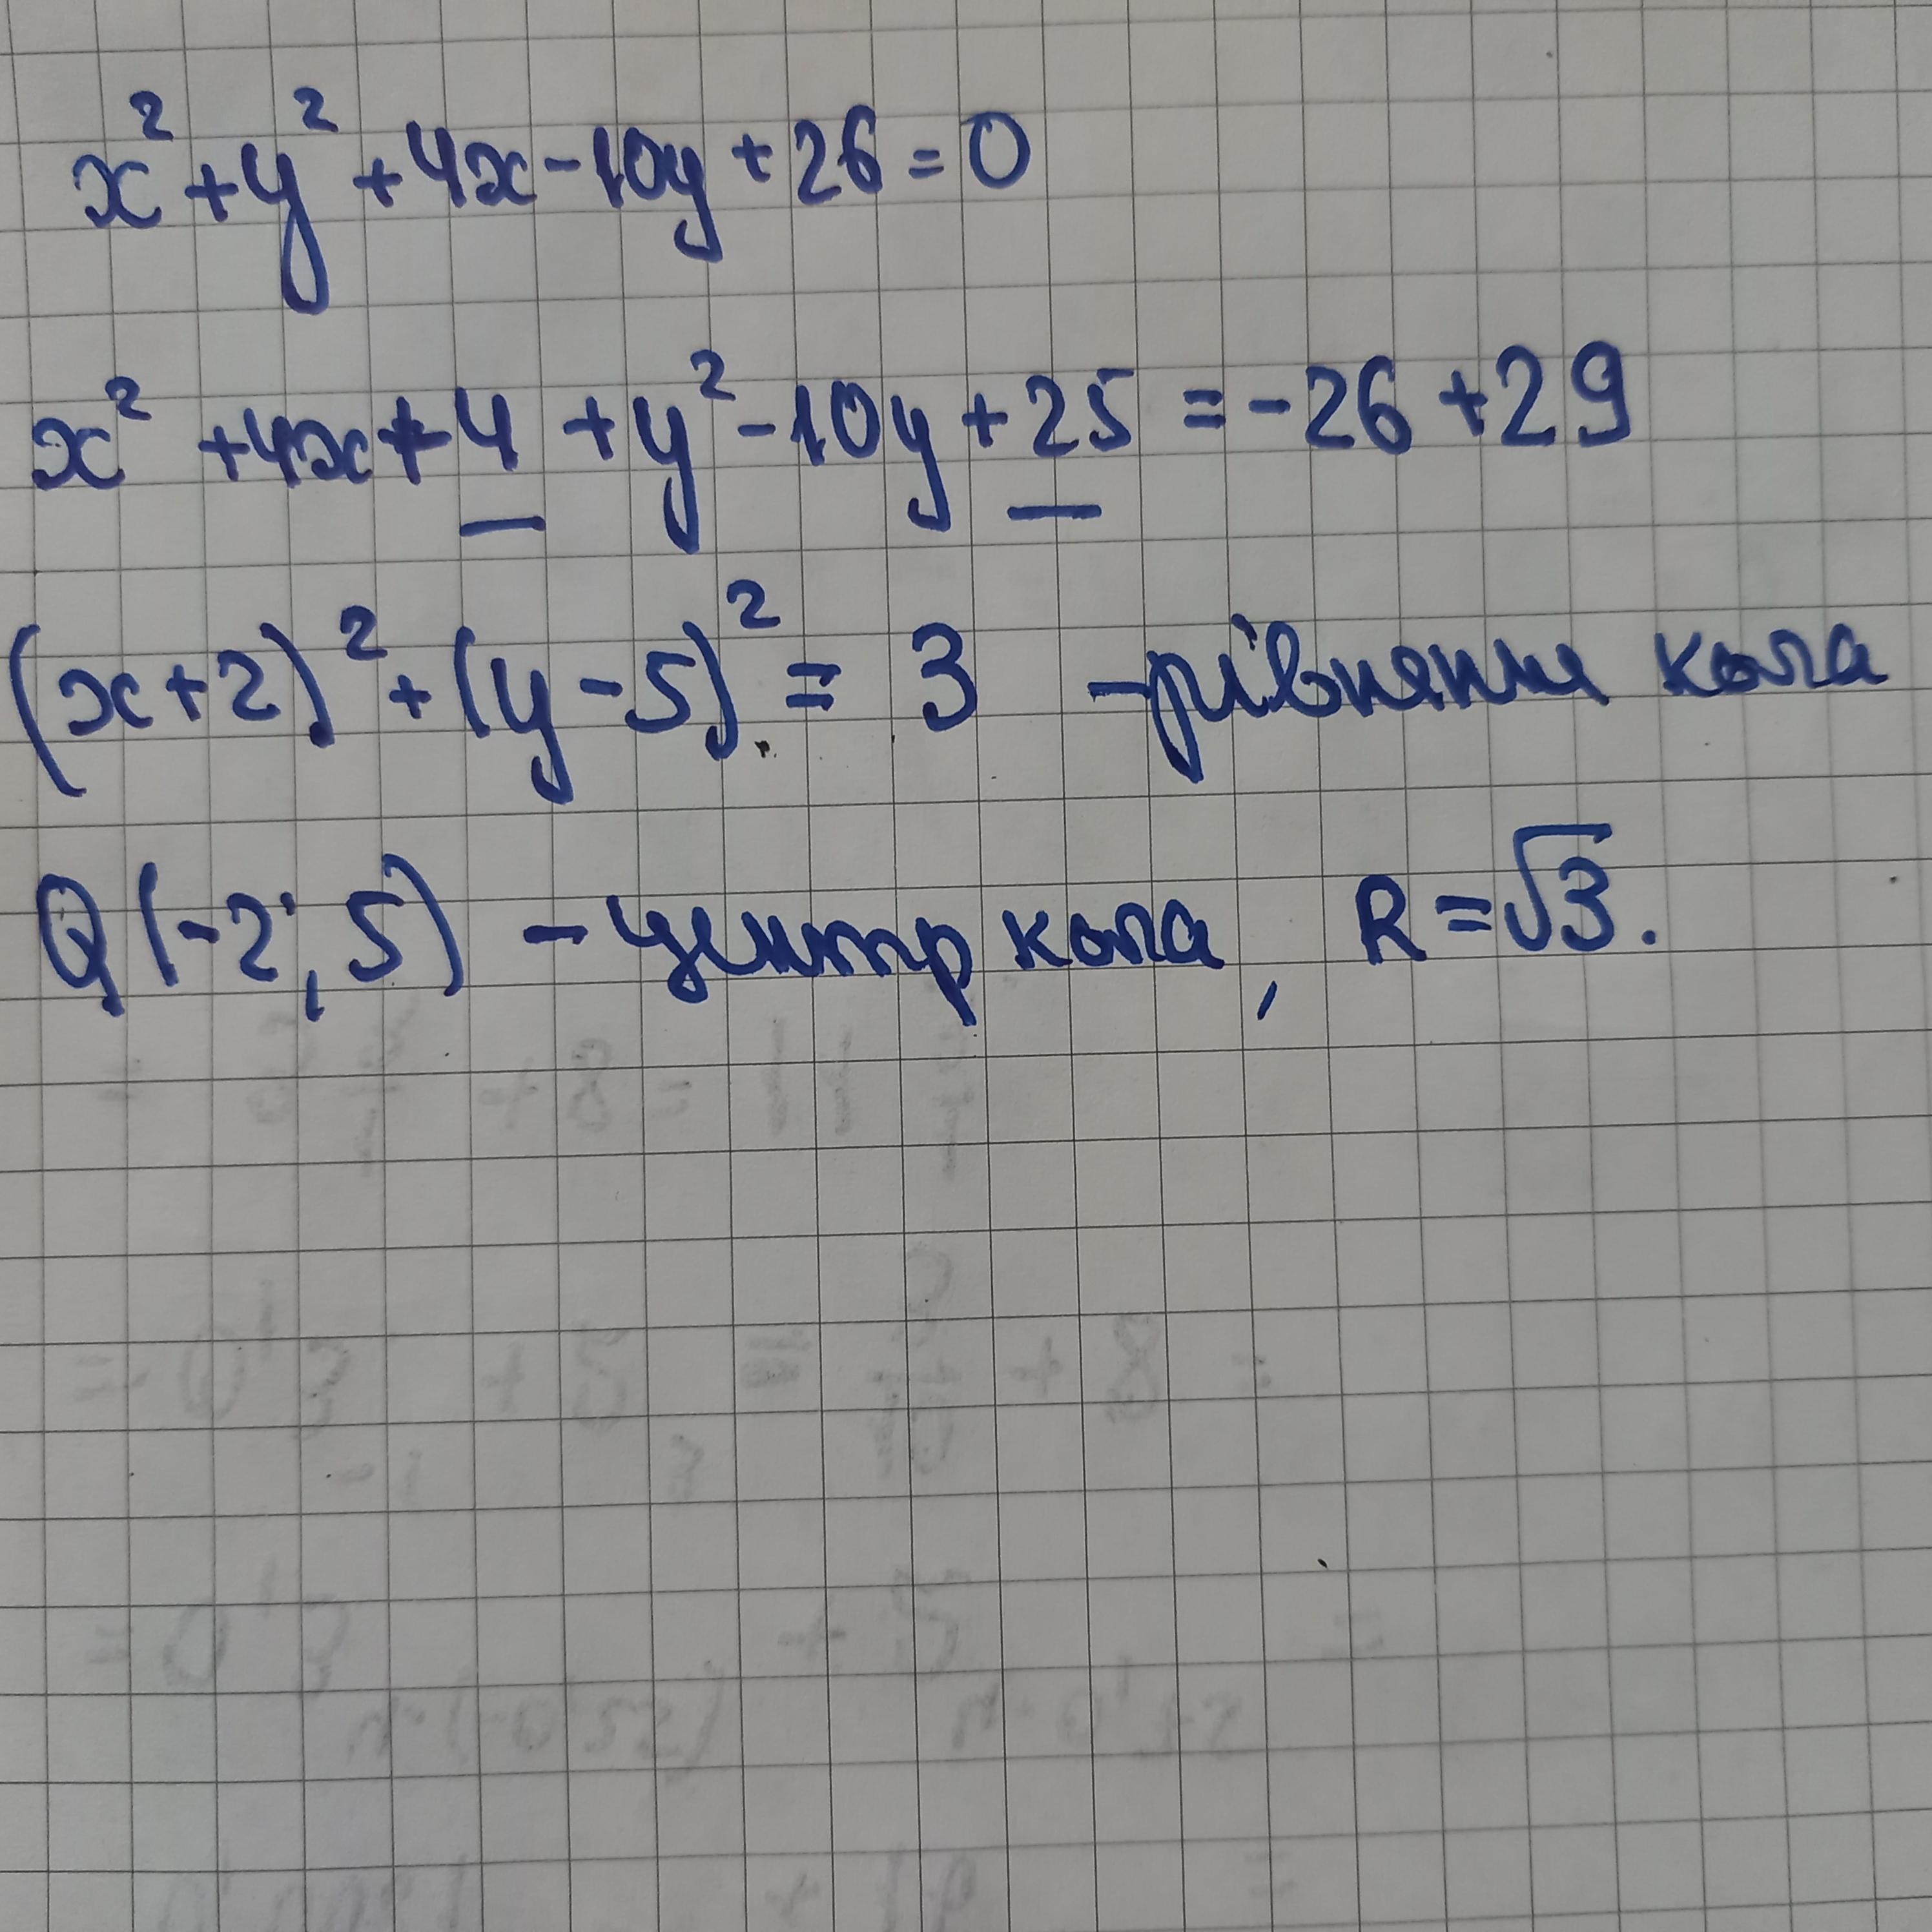 x² + y² + 4x - 10y + 26 = 0
x² + 4x + 4 + y² - 10y + 25 = -26 + 29
(x+2)² + (y-5)² = 3 - рівняння кола
Q(-2; 5) - центр кола, R = √3.